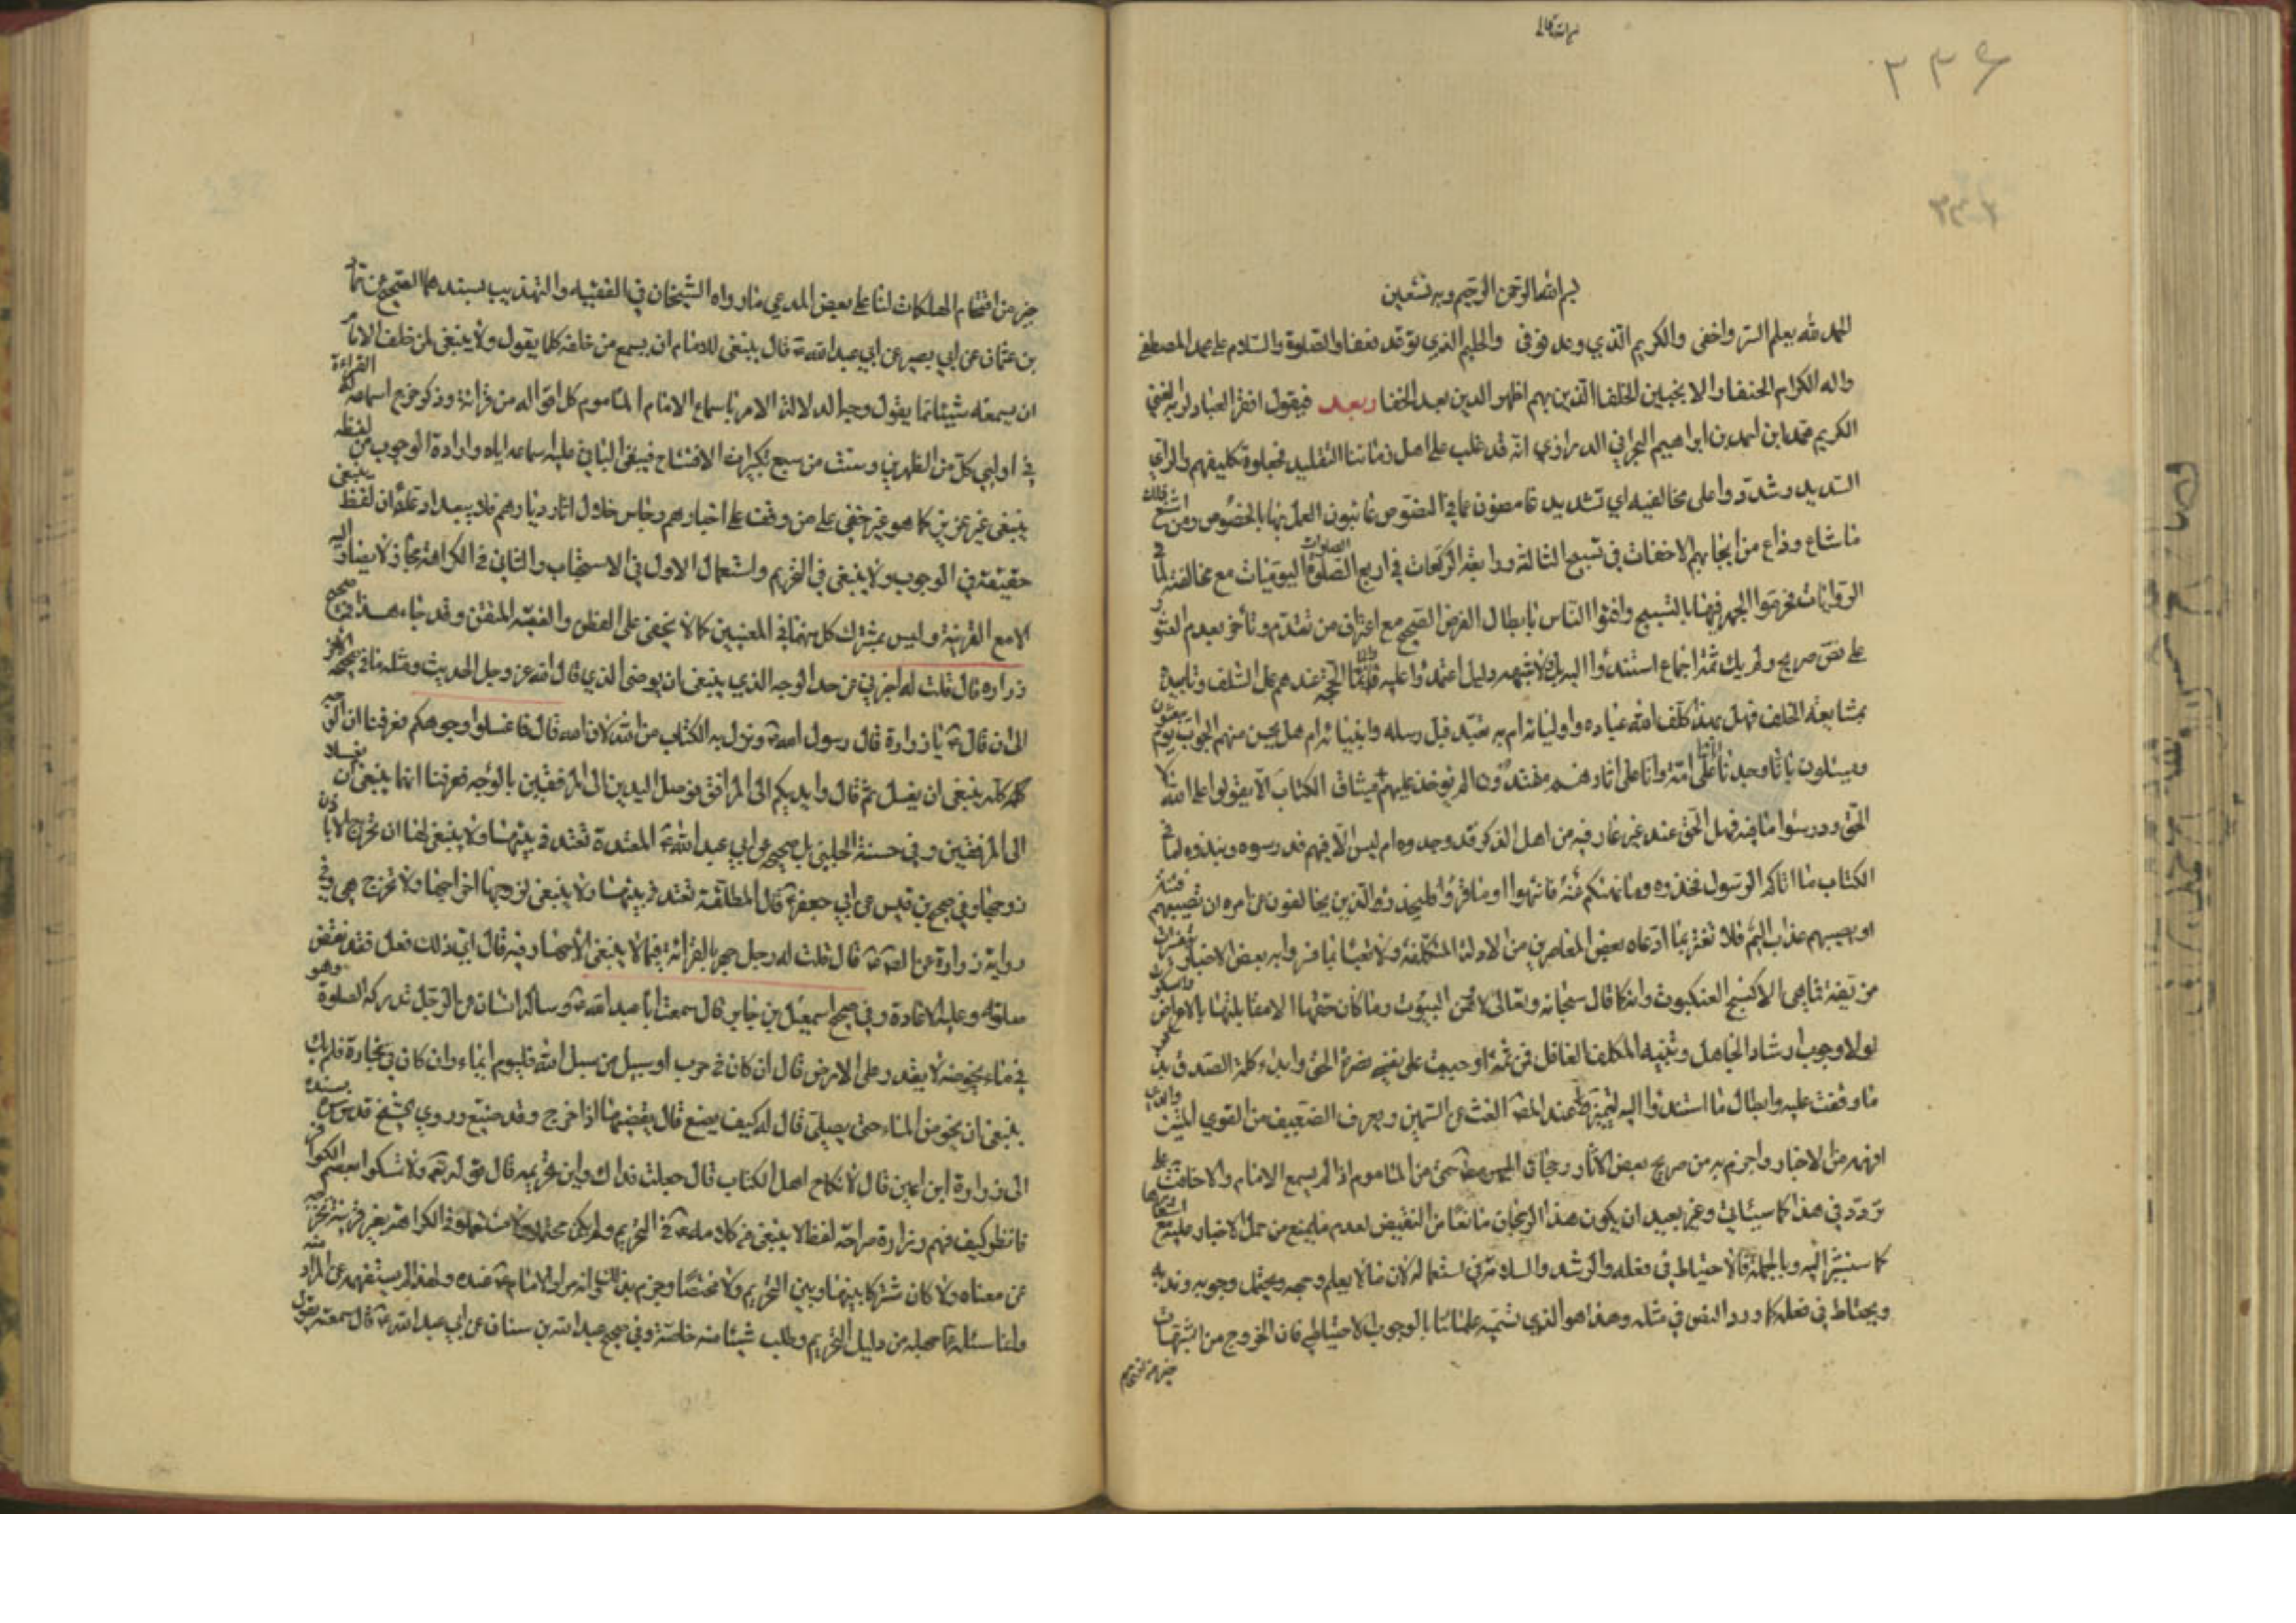 ٢٣٤
٢٣٤
بسم الله الرحمن الرحيم وبه نستعين
الحمد لله يعلم السر واخفى والكريم الذي وعد فوفى والحليم الذي توعد فعفا والصلوة والسلام على محمد المصطفى
واله الكرام الحنفا والانجبين الخلفا الذين بهم اظهر الدين بعد الخفا وبعد فيقول افقر العباد لربه الغني
الكريم محمد ابن احمد بن ابراهيم البحراني الدرازي انه قد غلب على اهل زماننا التقليد فجعلوه تكليفهم والراي
السديد وشددوا على مخالفيه اي تشديد غامضون عما في النصوص عائبون العمل بها بالخصوص ومن اشنع ذلك
ما شاع وذاع من ايجابهم الاخفات في تسبيح الثالثة ورابعة الركعات في اربع الصلوات اليوميات مع مخالفته لما في
الروايات فحرموا الجهر فيها بالتسبيح وافتوا الناس بابطال الفرض الصحيح مع اعتراف من تقدم وتأخر بعدم العثور
على نص صريح ولم يك ثمة اجماع استندوا اليه بل لا شهر دليل اعتمدوا عليه وانما الحجة عندهم عمل السلف وتاييده
بمشايعة الخلف فهل بهذا كلف الله عباده واوليائه ام به تعبد قبل رسله وانبيائه ام هل يحسن منهم الجواب يوم يبعثون
ويسئلون بانا وجدنا آبائنا على امة وانا على اثارهم مقتدون الم يؤخذ عليهم ميثاق الكتاب الا يقولوا على الله الا
الحق ودرسوا ما فيه فهل الحق عند غير عارفيه من اهل الذكر قد وجدوه ام ليس الا فيهم قد رسوه ونبذوه اما في
الكتاب ما اتاكم الرسول فخذوه وما نهيكم عنه فانتهوا او ما قرؤا فليحذر الذين يخالفون عن امره ان تصيبهم فتنة
او يصيبهم عذاب اليم فلا تغتر بما ادعاه بعض المعاصرين من الادلة المتكلفة ولا تعبأ بما فسروا به بعض الاخبار
من تقية فما هي الا كنسج العنكبوت وانه كما قال سبحانه وتعالى لاوهن البيوت وما كان حقها الا مقابلتها بالاعراض
لولا وجوب ارشاد الجاهل وتنبيه المكلف الغافل فمن ثمة اوجبت على نفسي نصرة الحق وابداء كلمة الصدق
ما وقفت عليه وابطال ما استندوا اليه ليتميز عند الغث عن السمين ويعرف الضعيف من القوي المتين
افهمه من الاخبار واجزم به من صريح بعض الاثار رجحان الجهر حتى من المأموم اذا لم يسمع الامام والاخفات على
تردد في هذا كما سيأتي وغير بعيد ان يكون هذا الرجحان مانعا من النقيض لعدم ما يمنع من حمل الاخبار عليه
كما سنشير اليه وبالجملة فالاحتياط في فعله والرشد والسلامة في استعماله لان ما لا يعلم وجهه ويحتمل وجوبه وندبه
ويحتاط في فعله كما ورد النص في مثله وهذا هو الذي تسميه علمائنا بالوجوب الاحتياطي فان الخروج من الشبهات
خير من اقتحام
خير من اقتحام الهلكات لنا على بعض المدعى ما رواه الشيخان في الفقيه والتهذيب بسندهما الصحيح عن حماد
بن عثمان عن ابي بصير عن ابي عبد الله ع قال ينبغي للامام ان يسمع من خلفه كلما يقول ولا ينبغي لمن خلف الامام
ان يسمعه شيئا مما يقول وجه الدلالة الامر باسماع الامام المأموم كل اقواله من قرائة وذكر خرج اسماعه القراءة
في اوليي كل من الظهرين وست من سبع تكبيرات الافتتاح فيبقى الباقي عليه اسماعه اياه وارادة الوجوب من لفظ
ينبغي غير عزيز كما هو غير خفي على من وقف على اخبارهم وجاس خلال اثار ديارهم فلا يبعد ادعاء ان لفظ ينبغي
حقيقة في الوجوب ولا ينبغي في التحريم واستعمال الاول في الاستحباب والثاني في الكراهة مجاز لا يصار اليه
الا مع القرينة وليس بمشترك كل منهما في المعنيين كما لا يخفى على الفطن والفقيه المتقن وقد جاء هذا في صحيح
زراره قال قلت له اخبرني عن حد الوجه الذي ينبغي ان يوضى الذي قال الله عز وجل الحديث ومثله ما في صحيحه الاخر
الى ان قال ع يا زرارة قال رسول الله ص ونزل به الكتاب من الله لان الله قال فاغسلوا وجوهكم فعرفنا ان الوجه
كله ينبغي ان يغسل ثم قال وايديكم الى المرافق فوصل اليدين الى المرفقين بالوجه فعرفنا انهما ينبغي ان يغسلا
الى المرفقين وفي حسنة الحلبي بل صحيحه عن ابي عبد الله ع المعتدة تعتد في بيتها ولا ينبغي لها ان تخرج الا باذن
زوجها وفي صحيح بن قيس عن ابي جعفر ع قال المطلقة تعتد في بيتها ولا ينبغي لزوجها اخراجها ولا تخرج هي وفي
رواية زرارة عن قال قلت له رجل جهر بالقرائة فيما لا ينبغي الاجهار فيه قال اي ذلك فعل فقد نقض
صلوته وعليه الاعادة وفي صحيح اسمعيل بن جابر قال سمعت ابا عبد الله ع وساله انسان عن الرجل تدركه الصلوة وهو
في ماء يخوضه لا يقدر على الارض قال ان كان في حرب او سبيل من سبل الله فليوم ايماء وان كان في تجارة فلم يك
ينبغي ان يخوض الماء حتى يصلي قال له كيف يصنع قال يقضيها اذا خرج وقد ضيع وروي الشيخ قدس سره بسنده
الى زرارة ابن اعين قال لا نكاح اهل الكتاب قال جعلت فداك واين تحريمه قال قوله تعالى ولا تمسكوا بعصم الكوافر
فانظر كيف فهم زرارة صراحة لفظ لا ينبغي في كلامه ع في التحريم ولم يكن محتملا
عن معناه ولا كان مشتركا بينها وبين التحريم ولا مختصا وجزم
ولما سئله عما جهله من دليل التحريم وطلب شيئا منه خاصة وفي صحيح عبد الله بن سنان عن ابي عبد الله ع قال سمعته يقول